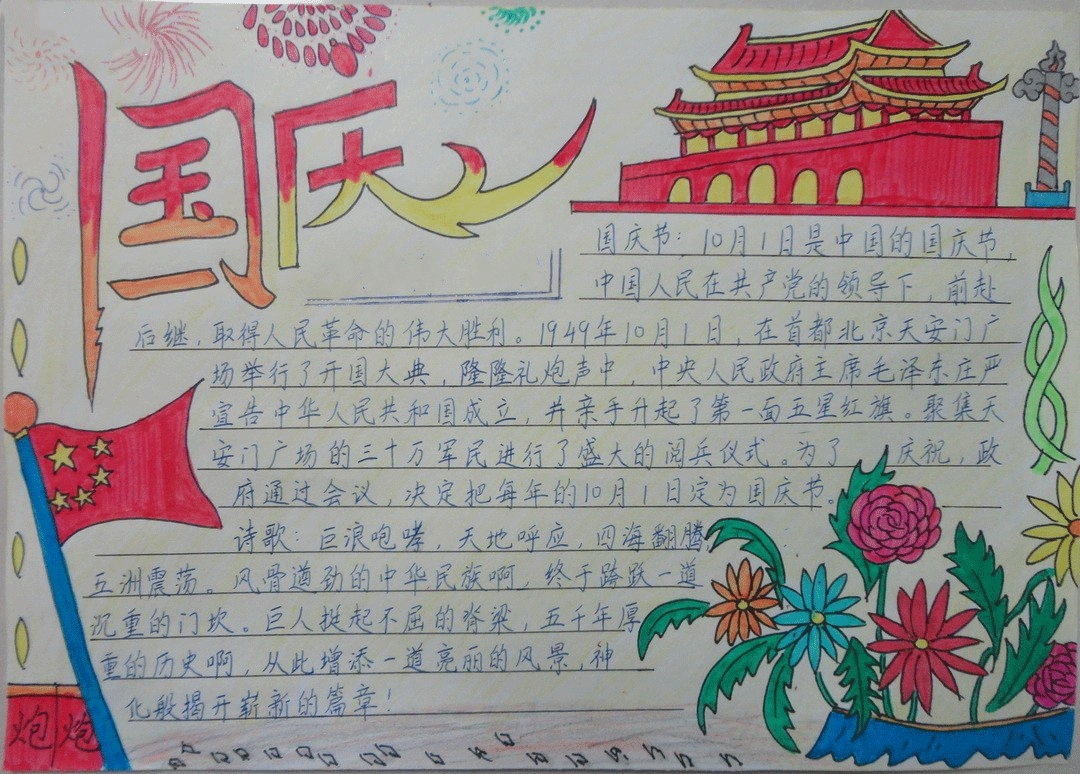 国庆
国庆节：10月1日是中国的国庆节，
中国人民在共产党的领导下，前赴
后继，取得人民革命的伟大胜利。1949年10月1日，在首都北京天安门广
场举行了开国大典，隆隆礼炮声中，中央人民政府主席毛泽东庄严
宣告中华人民共和国成立，并亲手升起了第一面五星红旗。聚集天
安门广场的三十万军民进行了盛大的阅兵仪式。为了 庆祝，政
府通过会议，决定把每年的10月1日定为国庆节。
诗歌：巨浪咆哮，天地呼应，四海翻腾，
五洲震荡。风骨遒劲的中华民族啊，终于跨跃一道
沉重的门坎。巨人挺起不屈的脊梁，五千年厚
重的历史啊，从此增添一道亮丽的风景，神
化般揭开崭新的篇章！
炮 炮